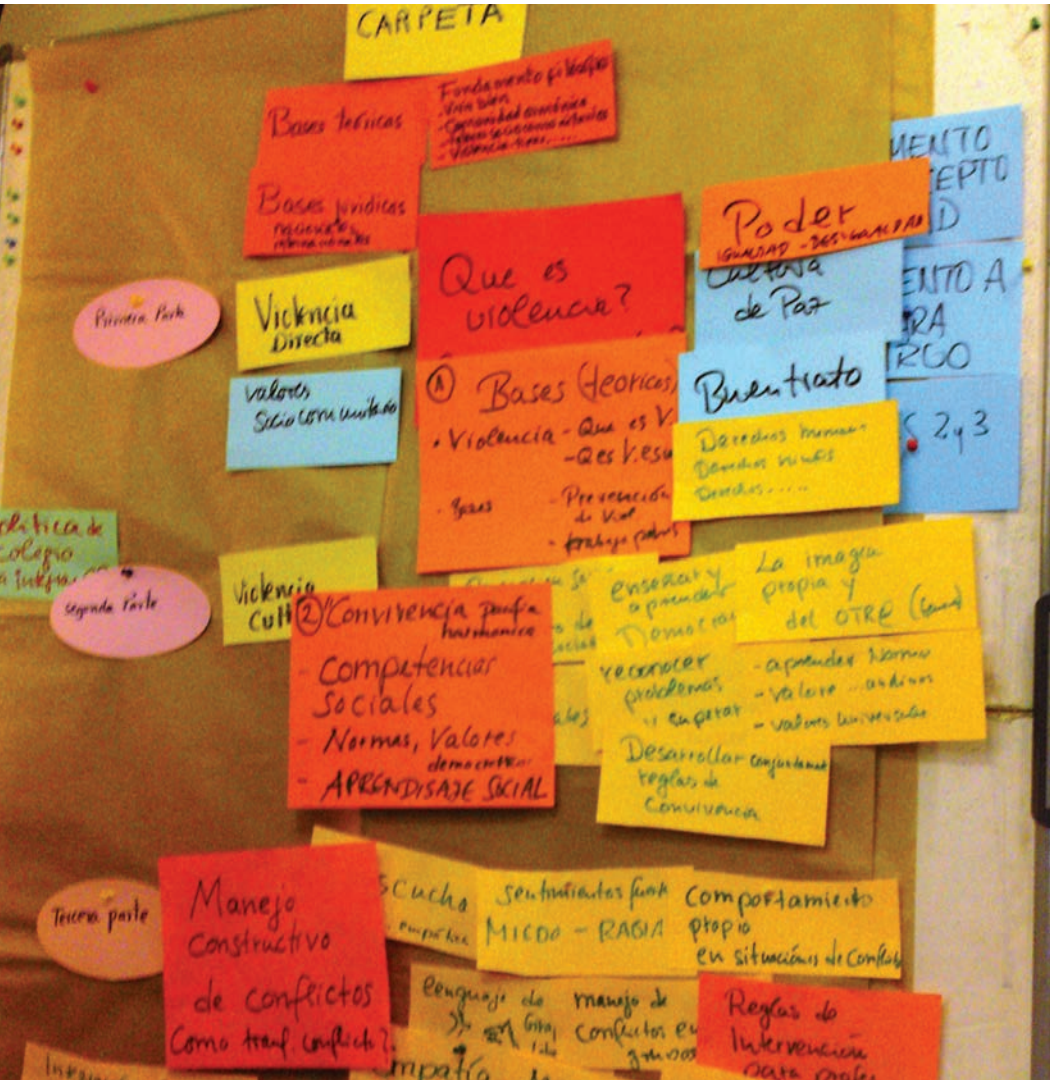 CARPETA
Bases teóricas
Fundamento filosófico
- Vivir bien
- Comunidad
- Violencia
Bases jurídicas
nacionales,
internacionales
Que es
violencia?
Poder
IGUALDAD - DESIGUALDAD
Cultura
de Paz
Buen trato
Derechos
Derechos niños
Derechos.....
MENTO
EPTO
D
ENTO A
RA
RGO
S 2 y 3
Primera Parte
Violencia
Directa
valores
Sociocomunitario
① Bases (teoricas,
• Violencia - Que es V.
- Q es V. esc
- Bases - Prevención
de Viol
- trabajo
olitica de
Colegio
Segunda Parte
Violencia
Cult
② Convivencia pacífica
harmonica
- Competencias
Sociales
- Normas, Valores
democrátic
- APRENDISAJE SOCIAL
enseñar y
aprender
Democrac
La imagen
propia y
del OTR@
reconocer
problemas
y superar
- aprender Norma
- valore ... andinos
- valores universale
Desarrollar conjuntamente
reglas de
Convivencia
Tercera parte
Manejo
constructivo
de conflictos
Como transf. conflicto?
scucha
empática
Sentimientos
MIEDO - RABIA
Comportamiento
propio
en situaciónes de Conflicto
lenguaje de
manejo de
conflictos en
grupos
Reglas de
Intervención
para profes
mpatía